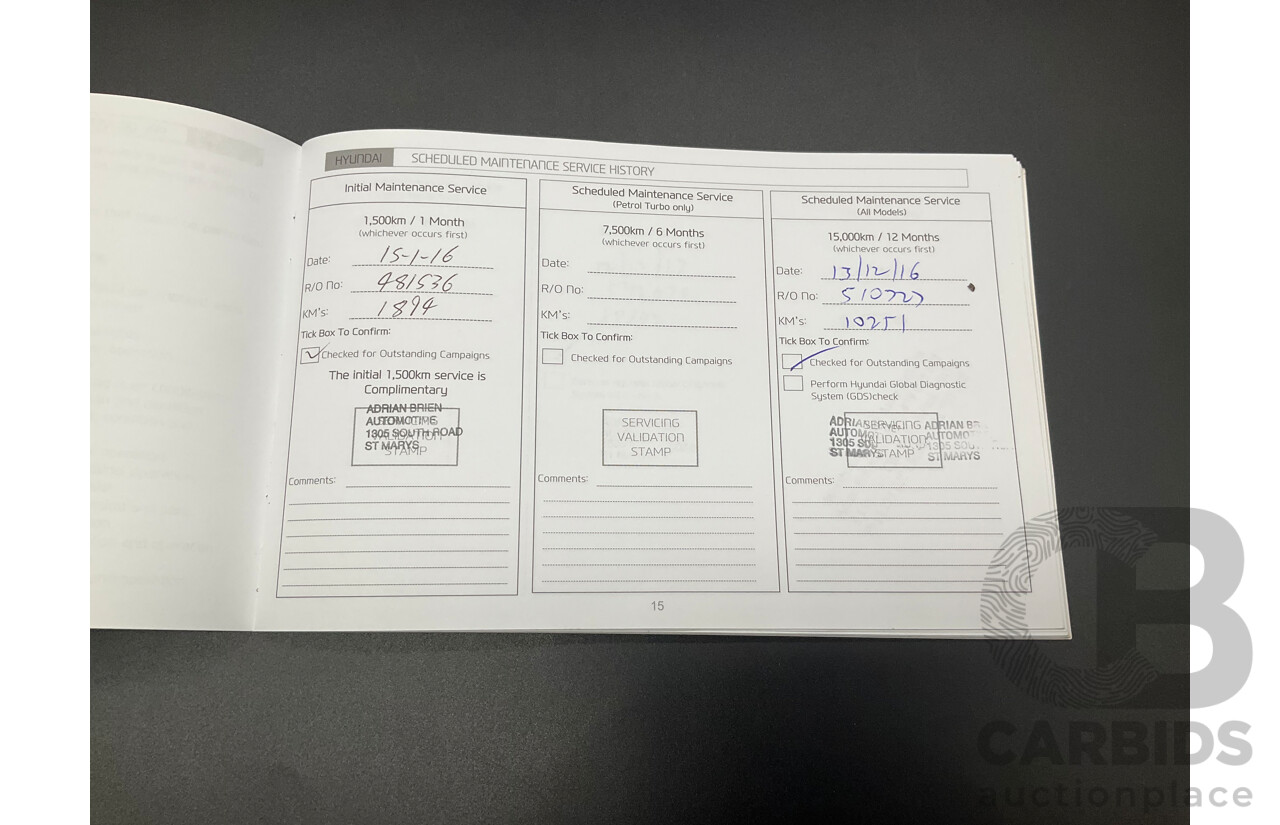 HYUNDAI SCHEDULED MAINTENANCE SERVICE HISTORY
Initial Maintenance Service
1,500km / 1 Month
(whichever occurs first)
Date: 15-1-16
R/O No: 481536
KM's: 1894
Tick Box To Confirm:
Checked for Outstanding Campaigns
The initial 1,500km service is
Complimentary
ADRIAN BRIEN
AUTOMOTIVE
1305 SOUTH ROAD
ST MARYS
VALIDATION
STAMP
Comments:
Scheduled Maintenance Service
(Petrol Turbo only)
7,500km / 6 Months
(whichever occurs first)
Date:
R/O No:
KM's:
Tick Box To Confirm:
Checked for Outstanding Campaigns
SERVICING
VALIDATION
STAMP
Comments:
Scheduled Maintenance Service
(All Models)
15,000km / 12 Months
(whichever occurs first)
Date: 13/12/16
R/O No: 510727
KM's: 10251
Tick Box To Confirm:
Checked for Outstanding Campaigns
Perform Hyundai Global Diagnostic
System (GDS)check
SERVICING
VALIDATION
STAMP
ADRIAN
1305
ST MARYS
ST MARYS
Comments:
15
CB
CARBIDS
auctionplace